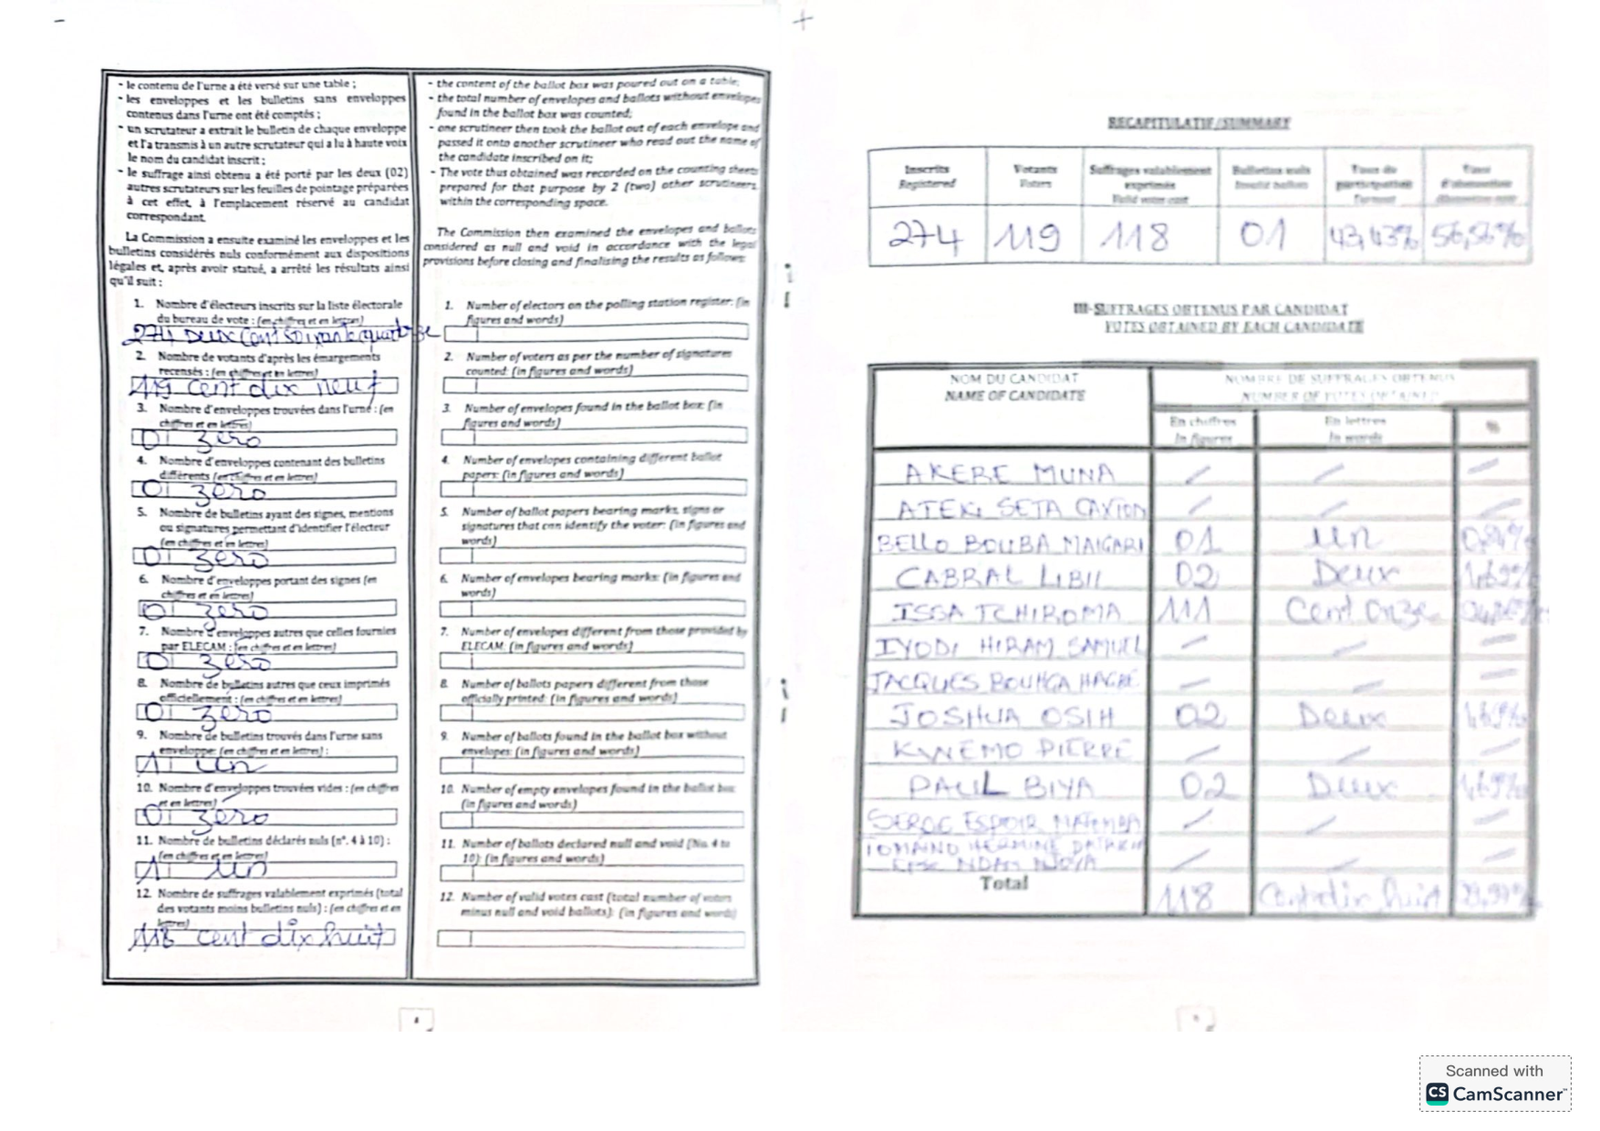 - le contenu de l'urne a été versé sur une table ;
- les enveloppes et les bulletins sans enveloppes
contenus dans l'urne ont été comptés ;
- un scrutateur a extrait le bulletin de chaque enveloppe
et l'a transmis à un autre scrutateur qui a lu à haute voix
le nom du candidat inscrit ;
- le suffrage ainsi obtenu a été porté par les deux (02)
autres scrutateurs sur les feuilles de pointage préparées
à cet effet, à l'emplacement réservé au candidat
correspondant.
La Commission a ensuite examiné les enveloppes et les
bulletins considérés nuls conformément aux dispositions
légales et, après avoir statué, a arrêté les résultats ainsi
qu'il suit :
1. Nombre d'électeurs inscrits sur la liste électorale
du bureau de vote : (en chiffres et en lettres)
274 Deux cent soixante quatorze
2. Nombre de votants d'après les émargements
recensés : (en chiffres et en lettres)
119 cent dix neuf
3. Nombre d'enveloppes trouvées dans l'urne : (en
chiffres et en lettres)
0 zéro
4. Nombre d'enveloppes contenant des bulletins
différents (en chiffres et en lettres)
0 zéro
5. Nombre de bulletins ayant des signes, mentions
ou signatures permettant d'identifier l'électeur
(en chiffres et en lettres)
0 zéro
6. Nombre d'enveloppes portant des signes (en
chiffres et en lettres)
0 zéro
7. Nombre d'enveloppes autres que celles fournies
par ELECAM : (en chiffres et en lettres)
0 zéro
8. Nombre de bulletins autres que ceux imprimés
officiellement : (en chiffres et en lettres)
0 zéro
9. Nombre de bulletins trouvés dans l'urne sans
enveloppe: (en chiffres et en lettres) :
1 un
10. Nombre d'enveloppes trouvées vides : (en chiffres
et en lettres)
0 zéro
11. Nombre de bulletins déclarés nuls (n°. 4 à 10) :
(en chiffres et en lettres)
1 un
12. Nombre de suffrages valablement exprimés (total
des votants moins bulletins nuls) : (en chiffres et en
lettres)
118 cent dix huit
- the content of the ballot box was poured out on a table;
- the total number of envelopes and ballots without envelopes
found in the ballot box was counted;
- one scrutineer then took the ballot out of each envelope and
passed it onto another scrutineer who read out the name of
the candidate inscribed on it;
- The vote thus obtained was recorded on the counting sheets
prepared for that purpose by 2 (two) other scrutineers,
within the corresponding space.
The Commission then examined the envelopes and ballots
considered as null and void in accordance with the legal
provisions before closing and finalising the results as follows:
1. Number of electors on the polling station register: (in
figures and words)
2. Number of voters as per the number of signatures
counted: (in figures and words)
3. Number of envelopes found in the ballot box: (in
figures and words)
4. Number of envelopes containing different ballot
papers: (in figures and words)
5. Number of ballot papers bearing marks, signs or
signatures that can identify the voter: (in figures and
words)
6. Number of envelopes bearing marks: (in figures and
words)
7. Number of envelopes different from those provided by
ELECAM: (in figures and words)
8. Number of ballots papers different from those
officially printed: (in figures and words)
9. Number of ballots found in the ballot box without
envelopes: (in figures and words)
10. Number of empty envelopes found in the ballot box:
(in figures and words)
11. Number of ballots declared null and void (No. 4 to
10): (in figures and words)
12. Number of valid votes cast (total number of voters
minus null and void ballots): (in figures and words)
RECAPITULATIF/SUMMARY
Inscrits Registered | Votants Voters | Suffrages valablement exprimés Valid votes cast | Bulletins nuls Invalid ballots | Taux de participation Turnout | Taux d'abstention
274 119 118 01 43,43% 56,56%
III-SUFFRAGES OBTENUS PAR CANDIDAT
VOTES OBTAINED BY EACH CANDIDATE
NOM DU CANDIDAT NOMBRE DE SUFFRAGES OBTENUS
NAME OF CANDIDATE NUMBER OF VOTES OBTAINED
En chiffres En lettres %
In figures In words
AKERE MUNA / / /
ATEKI SETA CAXTON / / /
BELLO BOUBA MAIGARI 01 un 0,84%
CABRAL LIBII 02 Deux 1,69%
ISSA TCHIROMA 111 Cent onze
IYODI HIRAM SAMUEL / / /
JACQUES BOUHGA HAGBE / / /
JOSHUA OSIH 02 Deux 1,69%
KWEMO PIERRE / / /
PAUL BIYA 02 Deux 1,69%
SERGE ESPOIR MATOMBA / / /
TOMAINO HERMINE PATRICIA
NDAM NJOYA / / /
Total 118 Cent dix huit
Scanned with
CS CamScanner